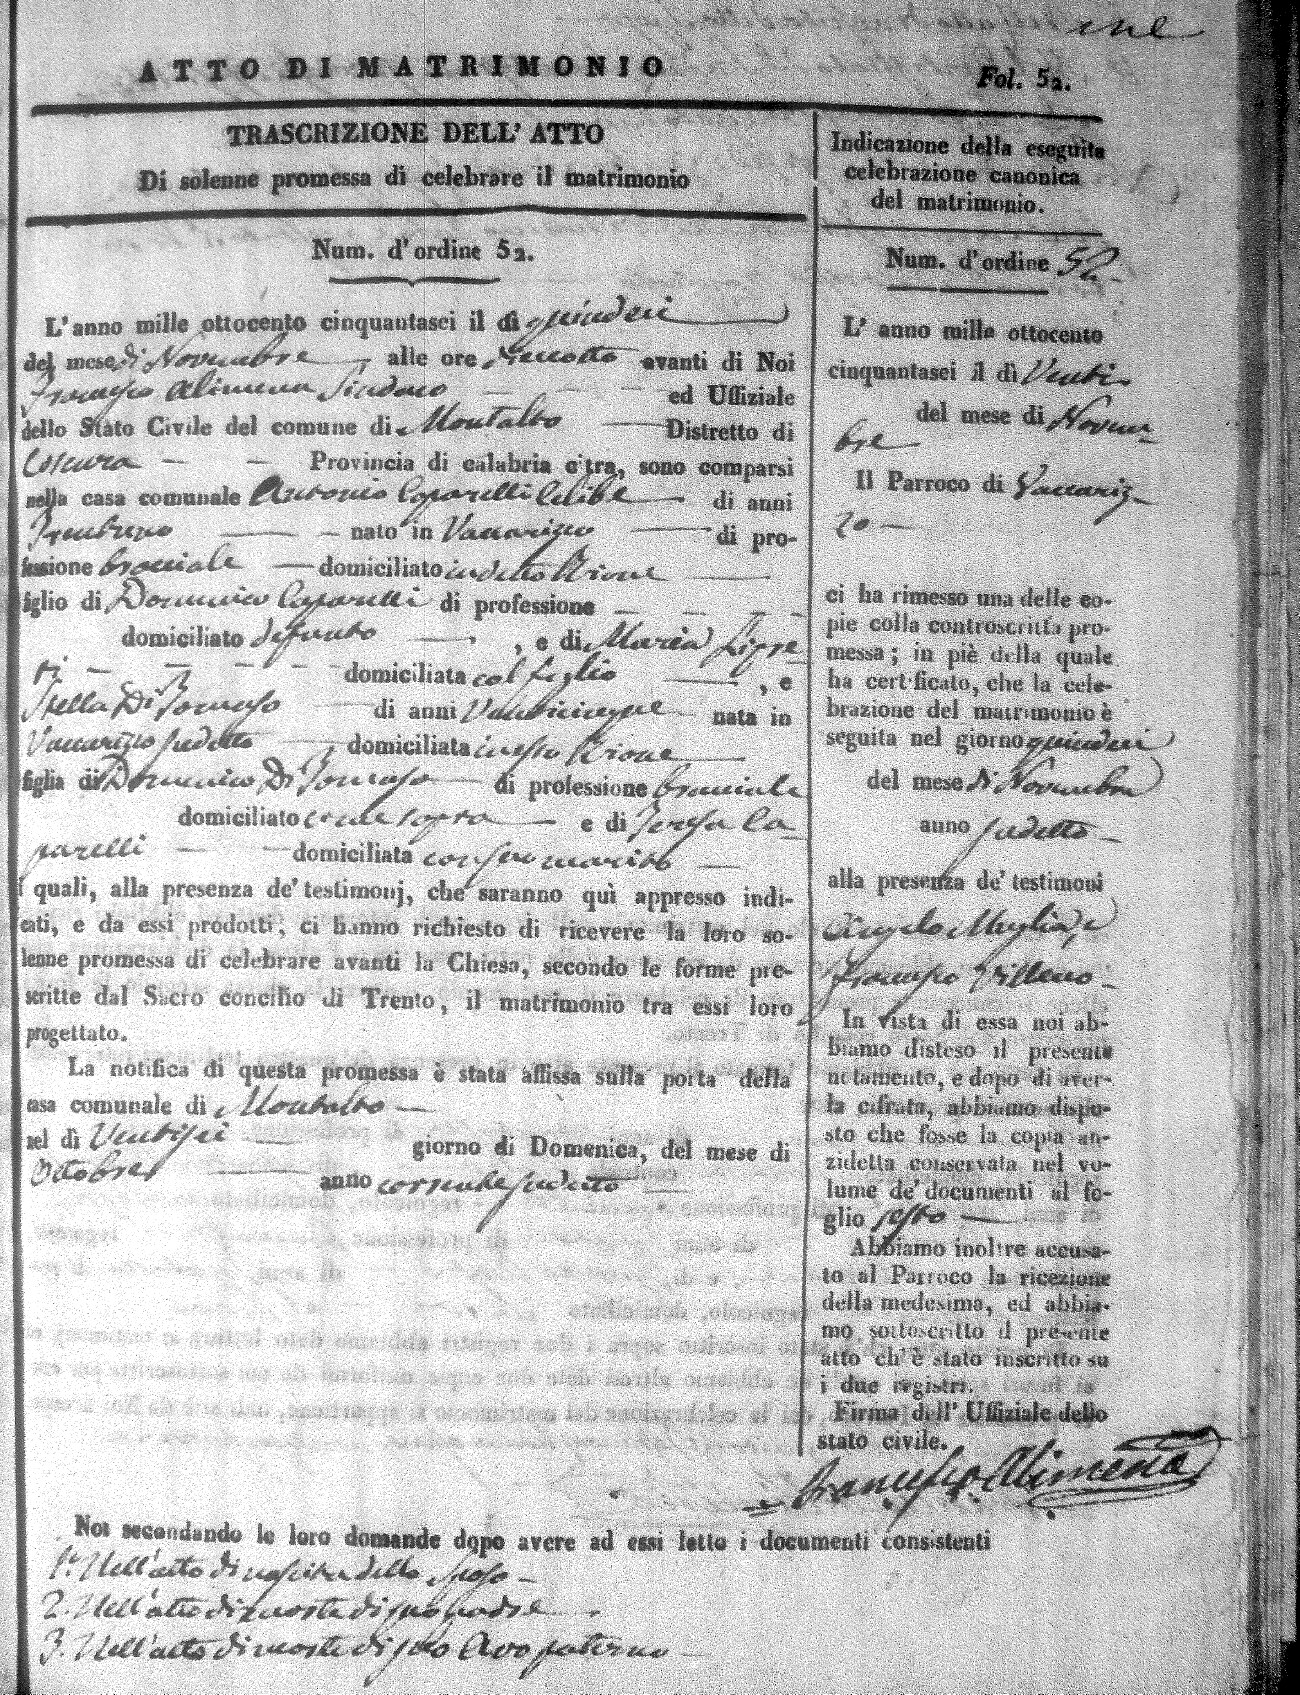 ATTO DI MATRIMONIO
Fol. 52.
TRASCRIZIONE DELL' ATTO
Di solenne promessa di celebrare il matrimonio
Num. d' ordine 52.
L' anno mille ottocento cinquantasei il dì quindeci
del mese di Novembre alle ore diecotto avanti di Noi
Francesco Alimena Sindaco ed Uffiziale
dello Stato Civile del comune di Montalto Distretto di
Cosenza Provincia di calabria citra, sono comparsi
nella casa comunale Antonio Caparelli Celibe di anni
Trentuno nato in Vaccarizzo di pro-
fessione bracciale domiciliato in detto Rione
figlio di Domenico Caparelli di professione
domiciliato defunto , e di Maria
domiciliata col figlio , e
Stella Di Tomaso di anni Venticinque nata in
Vaccarizzo sudetto domiciliata in esso Rione
figlia di Domenico Di Tomaso di professione bracciale
domiciliato come sopra e di Teresa Ca-
parelli domiciliata con suo marito
i quali, alla presenza de' testimonj, che saranno quì appresso indi-
cati, e da essi prodotti, ci hanno richiesto di ricevere la loro so-
lenne promessa di celebrare avanti la Chiesa, secondo le forme pre-
scritte dal Sacro concilio di Trento, il matrimonio tra essi loro
progettato.
La notifica di questa promessa è stata affissa sulla porta della
casa comunale di Montalto
nel dì Ventisei giorno di Domenica, del mese di
Ottobre anno corrente sudetto
Indicazione della eseguita
celebrazione canonica
del matrimonio.
Num. d' ordine 52
L' anno mille ottocento
cinquantasei il dì Venti
del mese di Novem
bre
Il Parroco di Vaccariz
zo
ci ha rimesso una delle co-
pie colla controscritta pro-
messa; in piè della quale
ha certificato, che la cele-
brazione del matrimonio è
seguita nel giorno quindeci
del mese di Novembre
anno sudetto
alla presenza de' testimoni
Angelo Muglia, e
Francesco Villano
In vista di essa noi ab-
biamo disteso il presente
notamento, e dopo di aver-
la cifrata, abbiamo dispo-
sto che fosse la copia an-
zidetta conservata nel vo-
lume de' documenti al fo-
glio sesto
Abbiamo inoltre accusa-
to al Parroco la ricezione
della medesima, ed abbia-
mo sottoscritto il presente
atto ch' è stato inscritto su
i due registri.
Firma dell' Uffiziale dello
stato civile.
Francesco Alimena
Noi secondando le loro domande dopo avere ad essi letto i documenti consistenti
1. Nell'atto di nascita dello Sposo
2. Nell'atto di morte di suo padre
3. Nell'atto di morte di suo Avo paterno